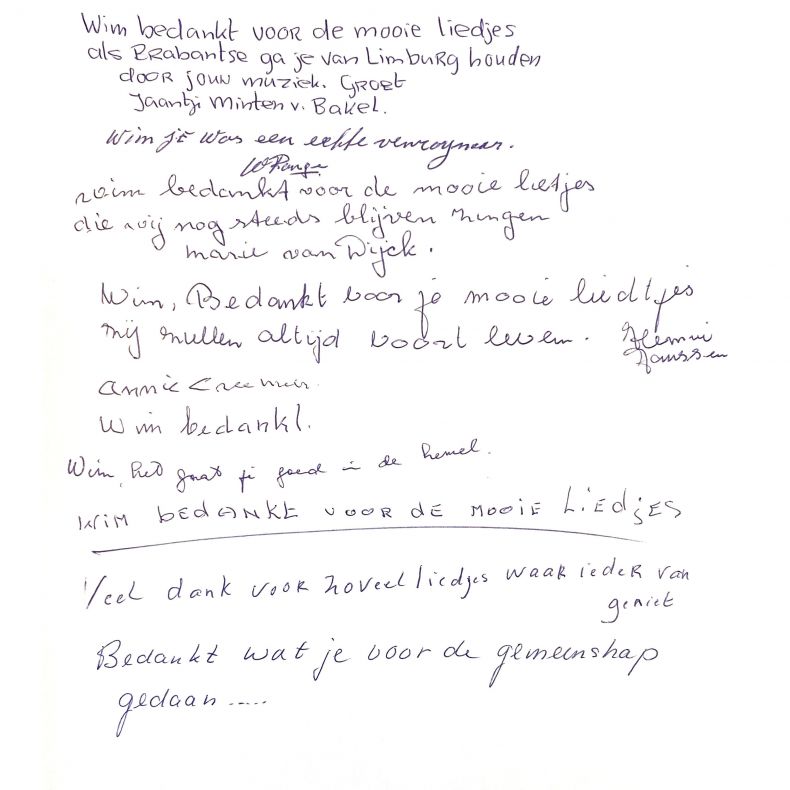 Wim bedankt voor de mooie liedjes
als Brabantse ga je van Limburg houden
door jouw muziek. Groet
Jaantje Minten v. Bakel.
Wim je was een echte venroynaar.
wim bedankt voor de mooie lietjes
die wij nog steeds blijven zingen
marie van Dijck.
Wim, Bedankt voor je mooie liedtjes
mij zullen altijd voort leven.
Janssen
annie
Wim bedankt.
Wim, het gaat je goed in de hemel.
WIM BEDANKT VOOR DE MOOIE LIEDJES
Veel dank voor zoveel liedjes waar ieder van
geniet
Bedankt wat je voor de gemeenshap
gedaan .....